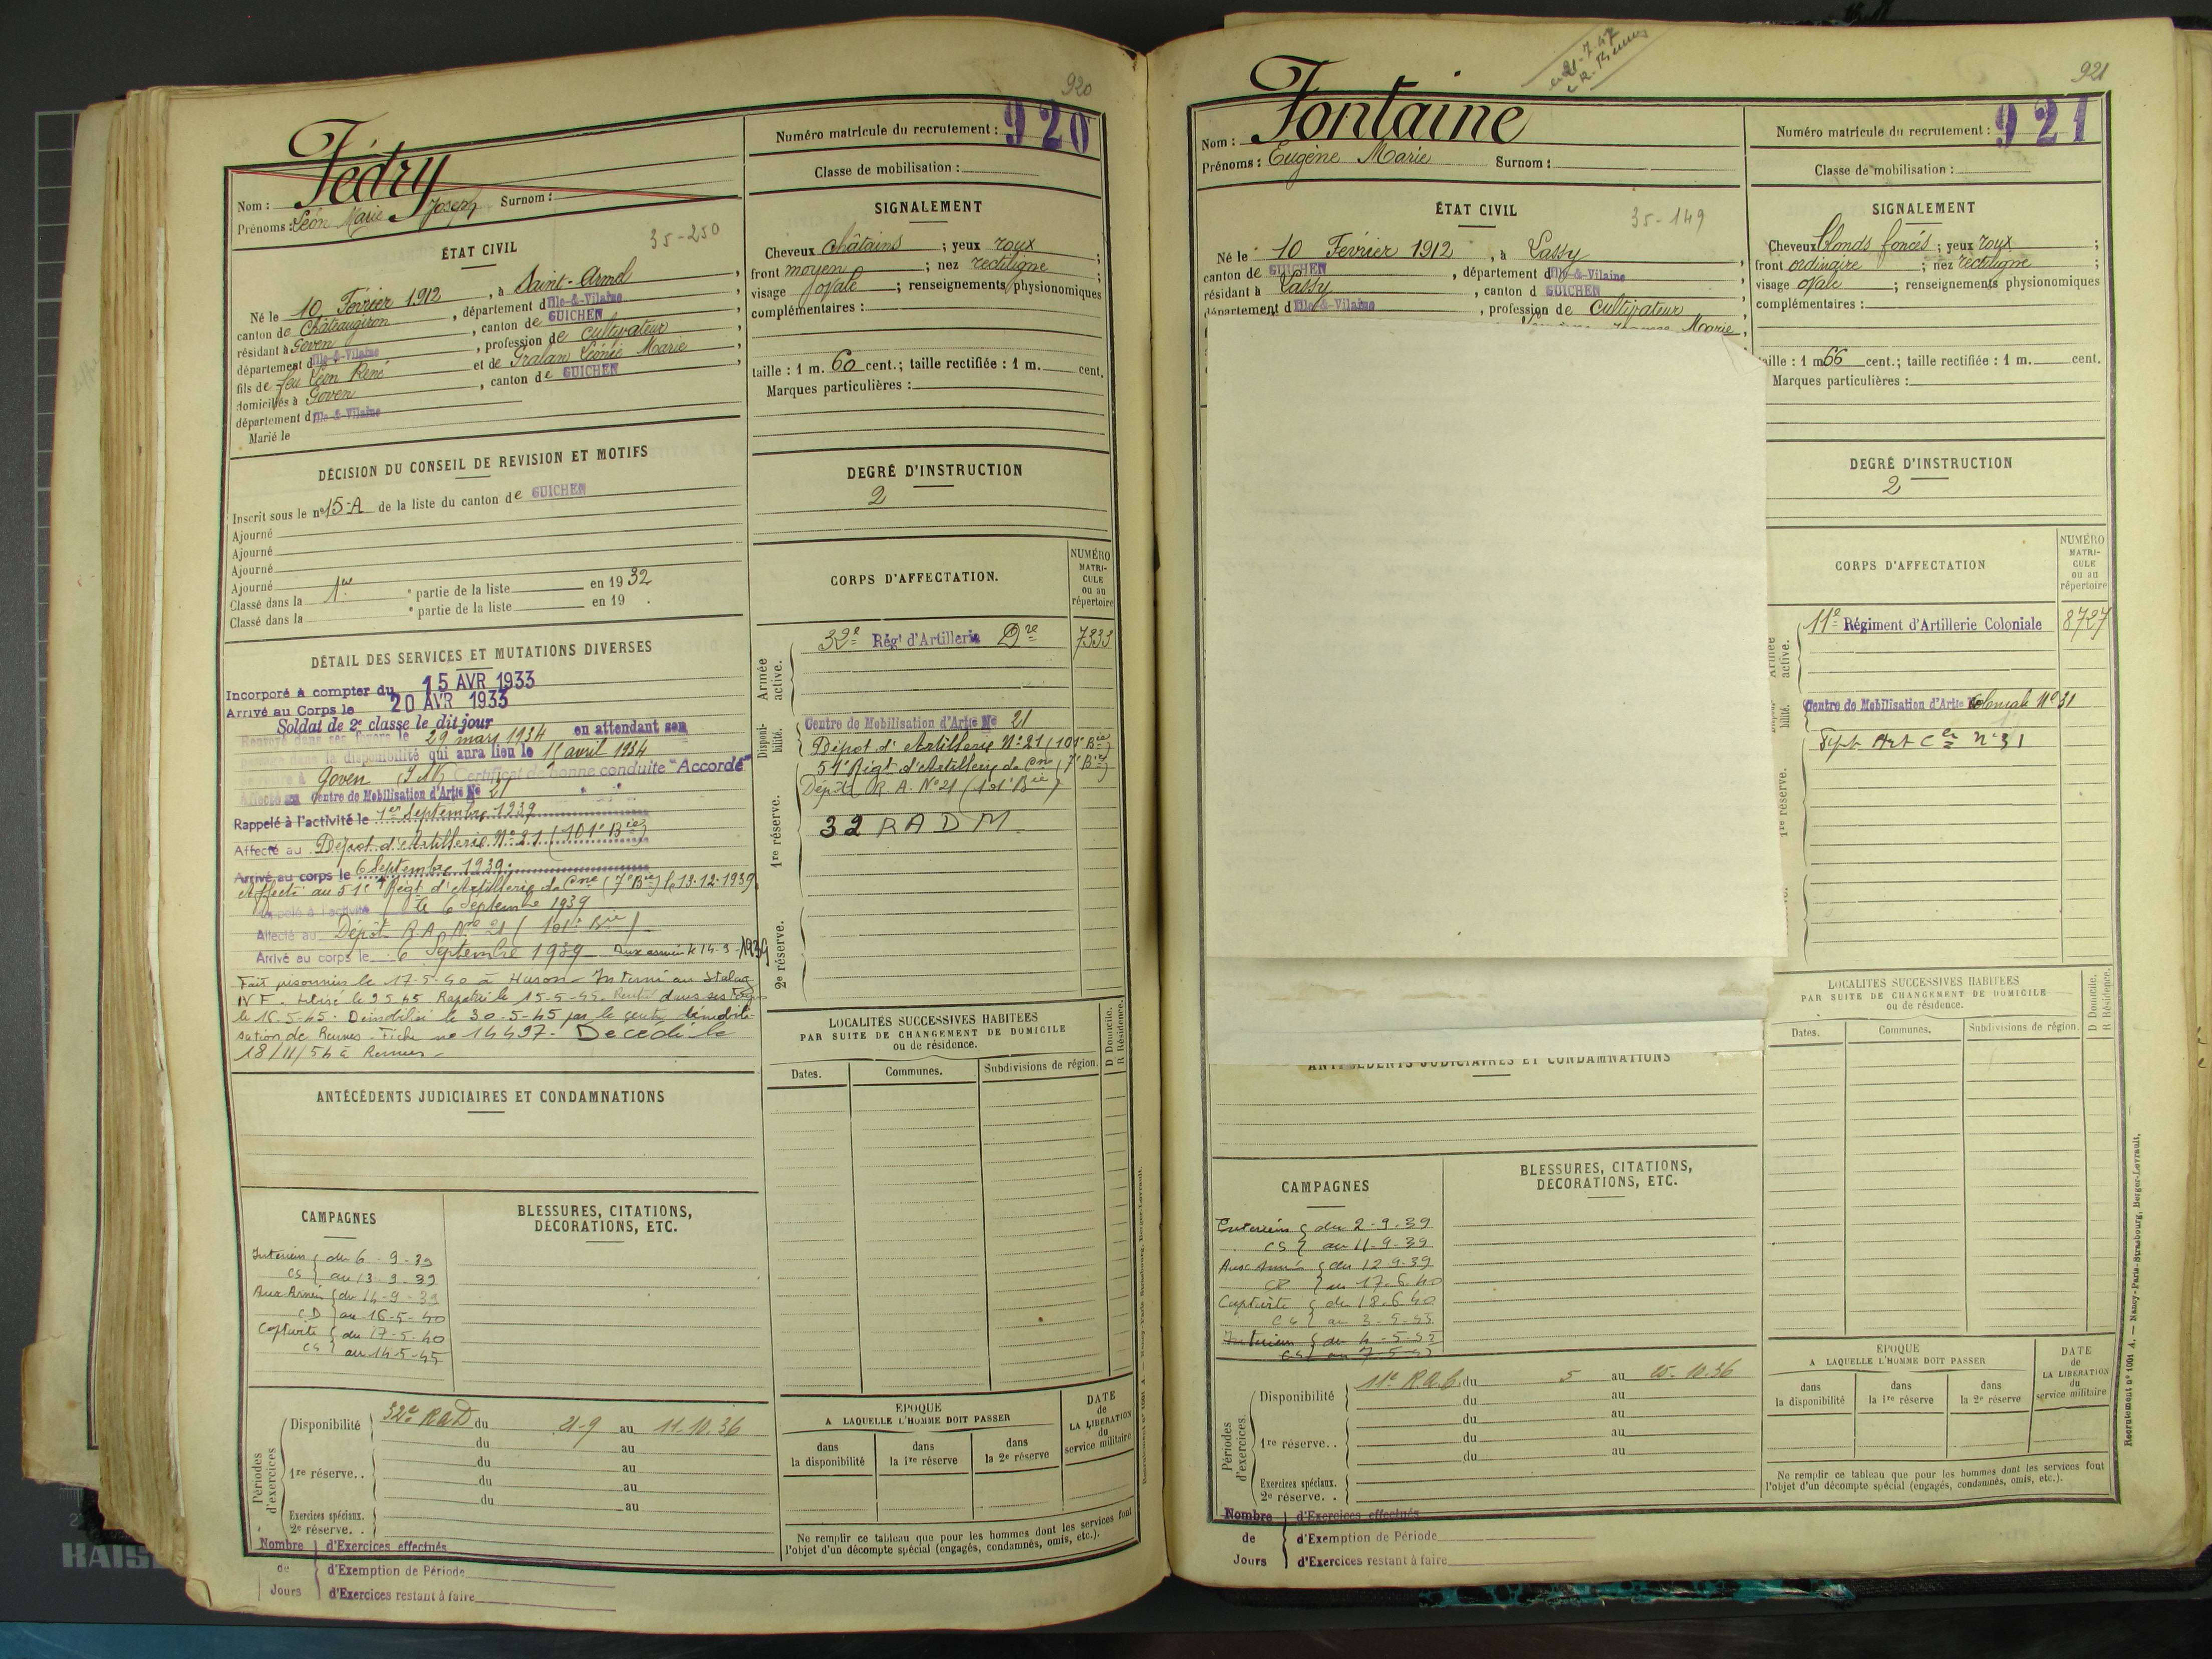 920
Fédry
Nom :
Prénoms : Léon Marie Joseph Surnom :
Numéro matricule du recrutement : 920
Classe de mobilisation :
ÉTAT CIVIL
35-250
Né le 10 Février 1912, à Saint-Armel,
canton de Châteaugiron, département d'Ille-&-Vilaine,
résidant à Goven, canton de GUICHEN,
département d'Ille-&-Vilaine, profession de cultivateur
fils de feu Léon René et de Gralan Léonie Marie,
domiciliés à Goven, canton de GUICHEN,
département d'Ille-&-Vilaine
Marié le
SIGNALEMENT
Cheveux châtains ; yeux roux ;
front moyen ; nez rectiligne ;
visage ovale ; renseignements physionomiques
complémentaires :
taille : 1 m. 60 cent.; taille rectifiée : 1 m. cent.
Marques particulières :
DÉCISION DU CONSEIL DE REVISION ET MOTIFS
Inscrit sous le nº 15-A de la liste du canton de GUICHEN
Ajourné
Ajourné
Ajourné
Ajourné
Classé dans la 1re e partie de la liste en 1932
Classé dans la e partie de la liste en 19 .
DEGRÉ D'INSTRUCTION
2
DÉTAIL DES SERVICES ET MUTATIONS DIVERSES
Incorporé à compter du 15 AVR 1933
Arrivé au Corps le 20 AVR 1933
Soldat de 2e classe le dit jour
Renvoyé dans ses foyers le 29 mars 1934 en attendant son
passage dans la disponibilité qui aura lieu le 15 avril 1934
Goven I et V Certificat de bonne conduite "Accordé"
Affecté au Centre de Mobilisation d'Artie No 21
Rappelé à l'activité le 1er Septembre 1939
Affecté au Dépot d'Artillerie Nº 21 (101e Bie)
Arrivé au corps le 6 Septembre 1939.
Affecté au 51e Régt d'Artillerie de Cne (7e Bie) le 13-12-1939
Rappelé à l'activité le 6 Septembre 1939
Affecté au Dépôt R.A. No 21 (101e Bie)
Arrivé au corps le 6 Septembre 1939 Aux armées le 14-9-1939
Fait prisonnier le 17-5-40 à Hirson - Interné au Stalag
IV F. Libéré le 9 5 45. Rapatrié le 15-5-45. Rentré dans ses foyers
le 16-5-45. Démobilisé le 30-5-45 par le centre démobili-
sation de Rennes. Fiche no 14497. Décédé le
18/11/54 à Rennes
CORPS D'AFFECTATION.
NUMÉRO MATRI-CULE ou au répertoire
Armée active.
32e Régt d'Artillerie Dre 7333
Disponi-bilité.
Centre de Mobilisation d'Artie No 21
Dépôt d'Artillerie Nº 21 (101e Bie)
51e Régt d'Artillerie de Cne (7e Bie)
Dépôt R.A. Nº 21 (101e Bie)
1re réserve.
32 R A D M
2e réserve.
ANTÉCÉDENTS JUDICIAIRES ET CONDAMNATIONS
LOCALITÉS SUCCESSIVES HABITÉES
PAR SUITE DE CHANGEMENT DE DOMICILE
ou de résidence.
D Domicile. R Résidence.
Dates. Communes. Subdivisions de région.
CAMPAGNES
Intérieur { du 6 - 9 - 39
CS } au 13 - 9 - 39
Aux Armées { du 14 - 9 - 39
CD } au 16-5-40
Captivité { du 17-5-40
CS } au 14-5-45
BLESSURES, CITATIONS,
DÉCORATIONS, ETC.
Périodes d'exercices
Disponibilité 32e RAD du 21-9 au 11.10.36
du au
1re réserve. . du au
du au
du au
Exercices spéciaux.
2e réserve. .
Nombre de Jours
d'Exercices effectués
d'Exemption de Période
d'Exercices restant à faire
ÉPOQUE
A LAQUELLE L'HOMME DOIT PASSER
dans la disponibilité dans la 1re réserve dans la 2e réserve
DATE de LA LIBÉRATION du service militaire
Ne remplir ce tableau que pour les hommes dont les services font
l'objet d'un décompte spécial (engagés, condamnés, omis, etc.).
21-7-47
921
Fontaine
Nom :
Prénoms : Eugène Marie Surnom :
Numéro matricule du recrutement : 921
Classe de mobilisation :
ÉTAT CIVIL
35-149
Né le 10 Février 1912, à Lassy,
canton de GUICHEN, département d'Ille-&-Vilaine
résidant à Lassy, canton d GUICHEN,
département d'Ille-&-Vilaine, profession de Cultivateur
Marie,
SIGNALEMENT
Cheveux blonds foncés ; yeux roux ;
front ordinaire ; nez rectiligne ;
visage ovale ; renseignements physionomiques
complémentaires :
taille : 1 m 66 cent.; taille rectifiée : 1 m. cent.
Marques particulières :
DEGRÉ D'INSTRUCTION
2
CORPS D'AFFECTATION
NUMÉRO MATRI-CULE ou au répertoire
Armée active.
11e Régiment d'Artillerie Coloniale 8727
bilité.
Centre de Mobilisation d'Artie Coloniale Nº 31
Dépt Art Cle nº 31
1re réserve.
LOCALITÉS SUCCESSIVES HABITÉES
PAR SUITE DE CHANGEMENT DE DOMICILE
ou de résidence.
D Domicile. R Résidence.
Dates. Communes. Subdivisions de région.
ANTÉCÉDENTS JUDICIAIRES ET CONDAMNATIONS
CAMPAGNES
Intérieur { du 2-9-39
CS } au 11-9-39
Aux Armées { du 12-9-39
CD } au 17-6-40
Captivité { du 18-6-40
CS } au 3-5-45
Intérieur { du 4-5-45
CS } au 7-5-45
BLESSURES, CITATIONS,
DÉCORATIONS, ETC.
Périodes d'exercices.
Disponibilité 11e R.A.C. du 5 au 25.10.36
du au
du au
1re réserve. . du au
du au
Exercices spéciaux.
2e réserve. .
Nombre de Jours
d'Exercices effectués
d'Exemption de Période
d'Exercices restant à faire
ÉPOQUE
A LAQUELLE L'HOMME DOIT PASSER
dans la disponibilité dans la 1re réserve dans la 2e réserve
DATE de LA LIBÉRATION du service militaire
Ne remplir ce tableau que pour les hommes dont les services font
l'objet d'un décompte spécial (engagés, condamnés, omis, etc.).
Recrutement nº 1001 A. — Nancy-Paris-Strasbourg, Berger-Levrault.